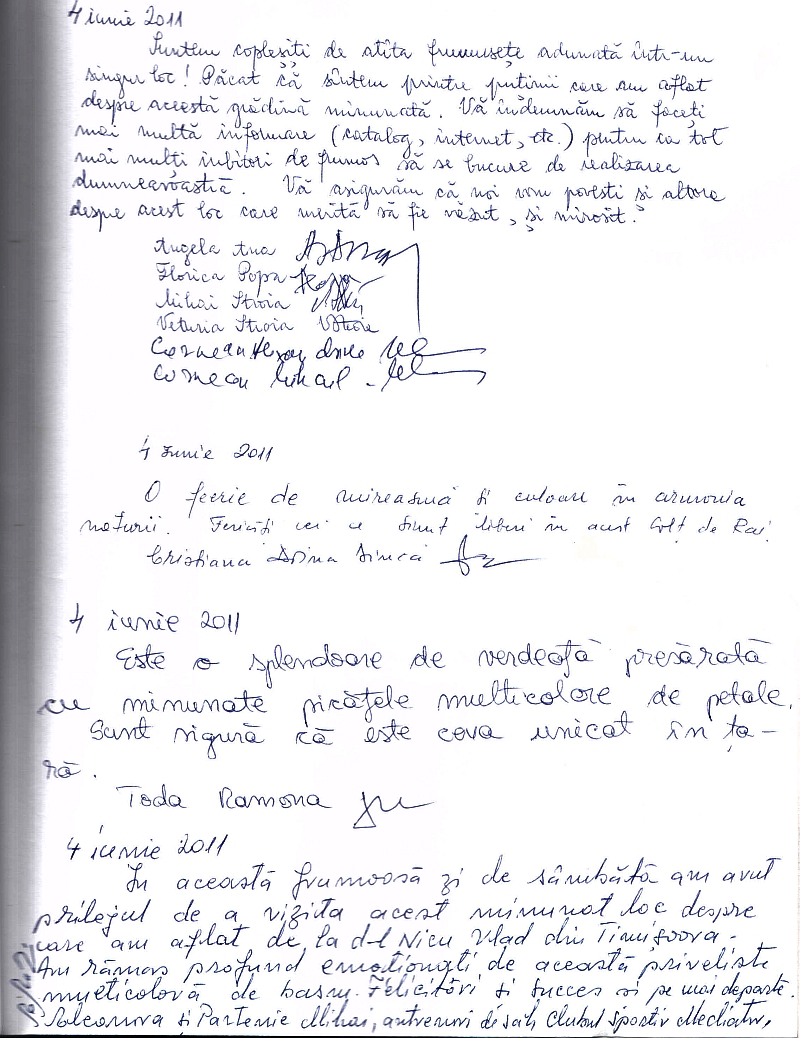 4 iunie 2011
Suntem copleșiți de atîta frumusețe adunată într-un
singur loc! Păcat că sîntem printre puținii care am aflat
despre această grădină minunată. Vă îndemnăm să faceți
mai multă informare (catalog, internet, etc.) pentru ca toț
mai mulți iubitori de frumos să se bucure de realizarea
dumneavoastră. Vă asigurăm că noi vom povesti și altora
despre acest loc care merită să fie văzut, și mirosit.
Angela Ana
Florica Popa
Mihai Stroia
Veturia Stroia
Cornean
Cornean Mihail
4 Iunie 2011
O feerie de mireasmă și culoare în armonia
naturii. Fericiți cei ce sunt liberi în acest Colț de Rai!
Cristiana Dina
4 iunie 2011
Este o splendoare de verdeață presărată
cu minunate picățele multicolore de petale.
Sunt sigură că este ceva unicat în ța-
ră.
Toda Ramona
4 iunie 2011
În această frumoasă zi de sâmbătă am avut
prilejul de a vizita acest minunat loc despre
care am aflat de la d-l Nicu Vlad din Timișoara.
Am rămas profund emoționați de această priveliște
multicoloră de basm. Felicitări și succes și pe mai departe.
și Partenie Mihai, antrenori de șah Clubul Sportiv Medicator,